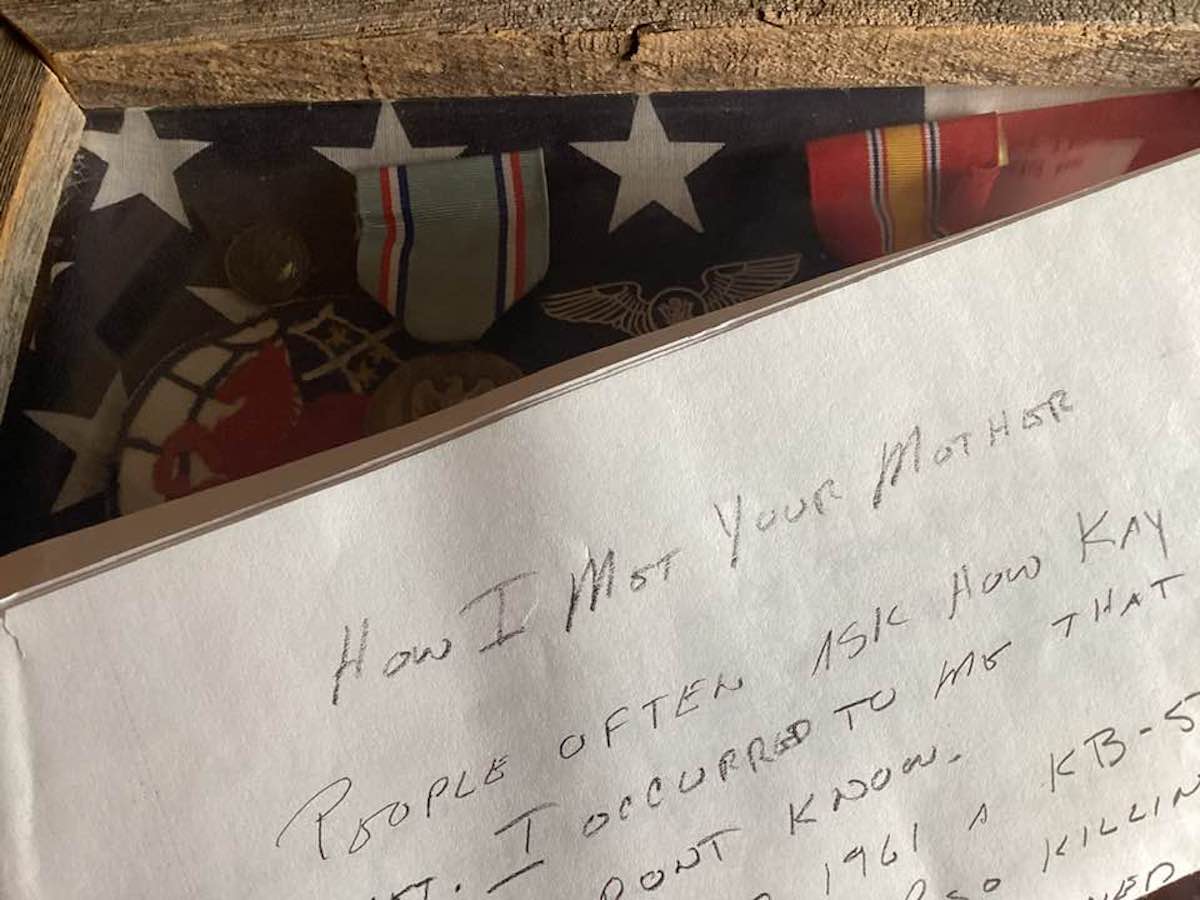 How I Met Your Mother
People often ask how Kay
I occurred to me that
dont know.
1961 A KB-5
so killin